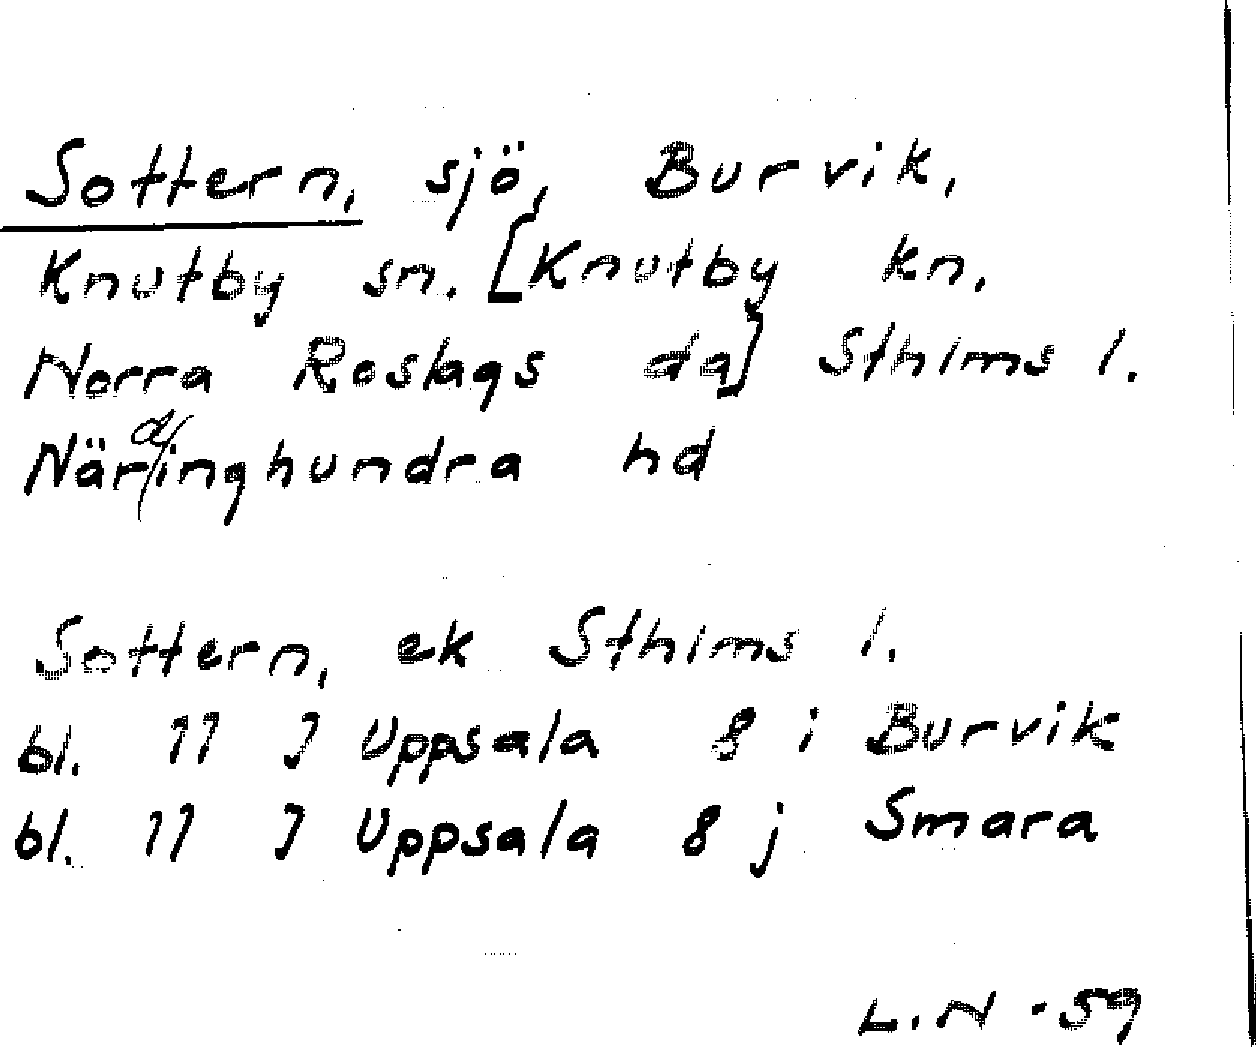 Sottern, sjö, Burvik,
Knutby sn. [Knutby kn.
Norra Roslags da] Sthlms l.
Närdinghundra hd
Sottern, ek Sthlms l.
bl. 11 J Uppsala 8 i Burvik
bl. 11 J Uppsala 8 j Smara
L.N -59